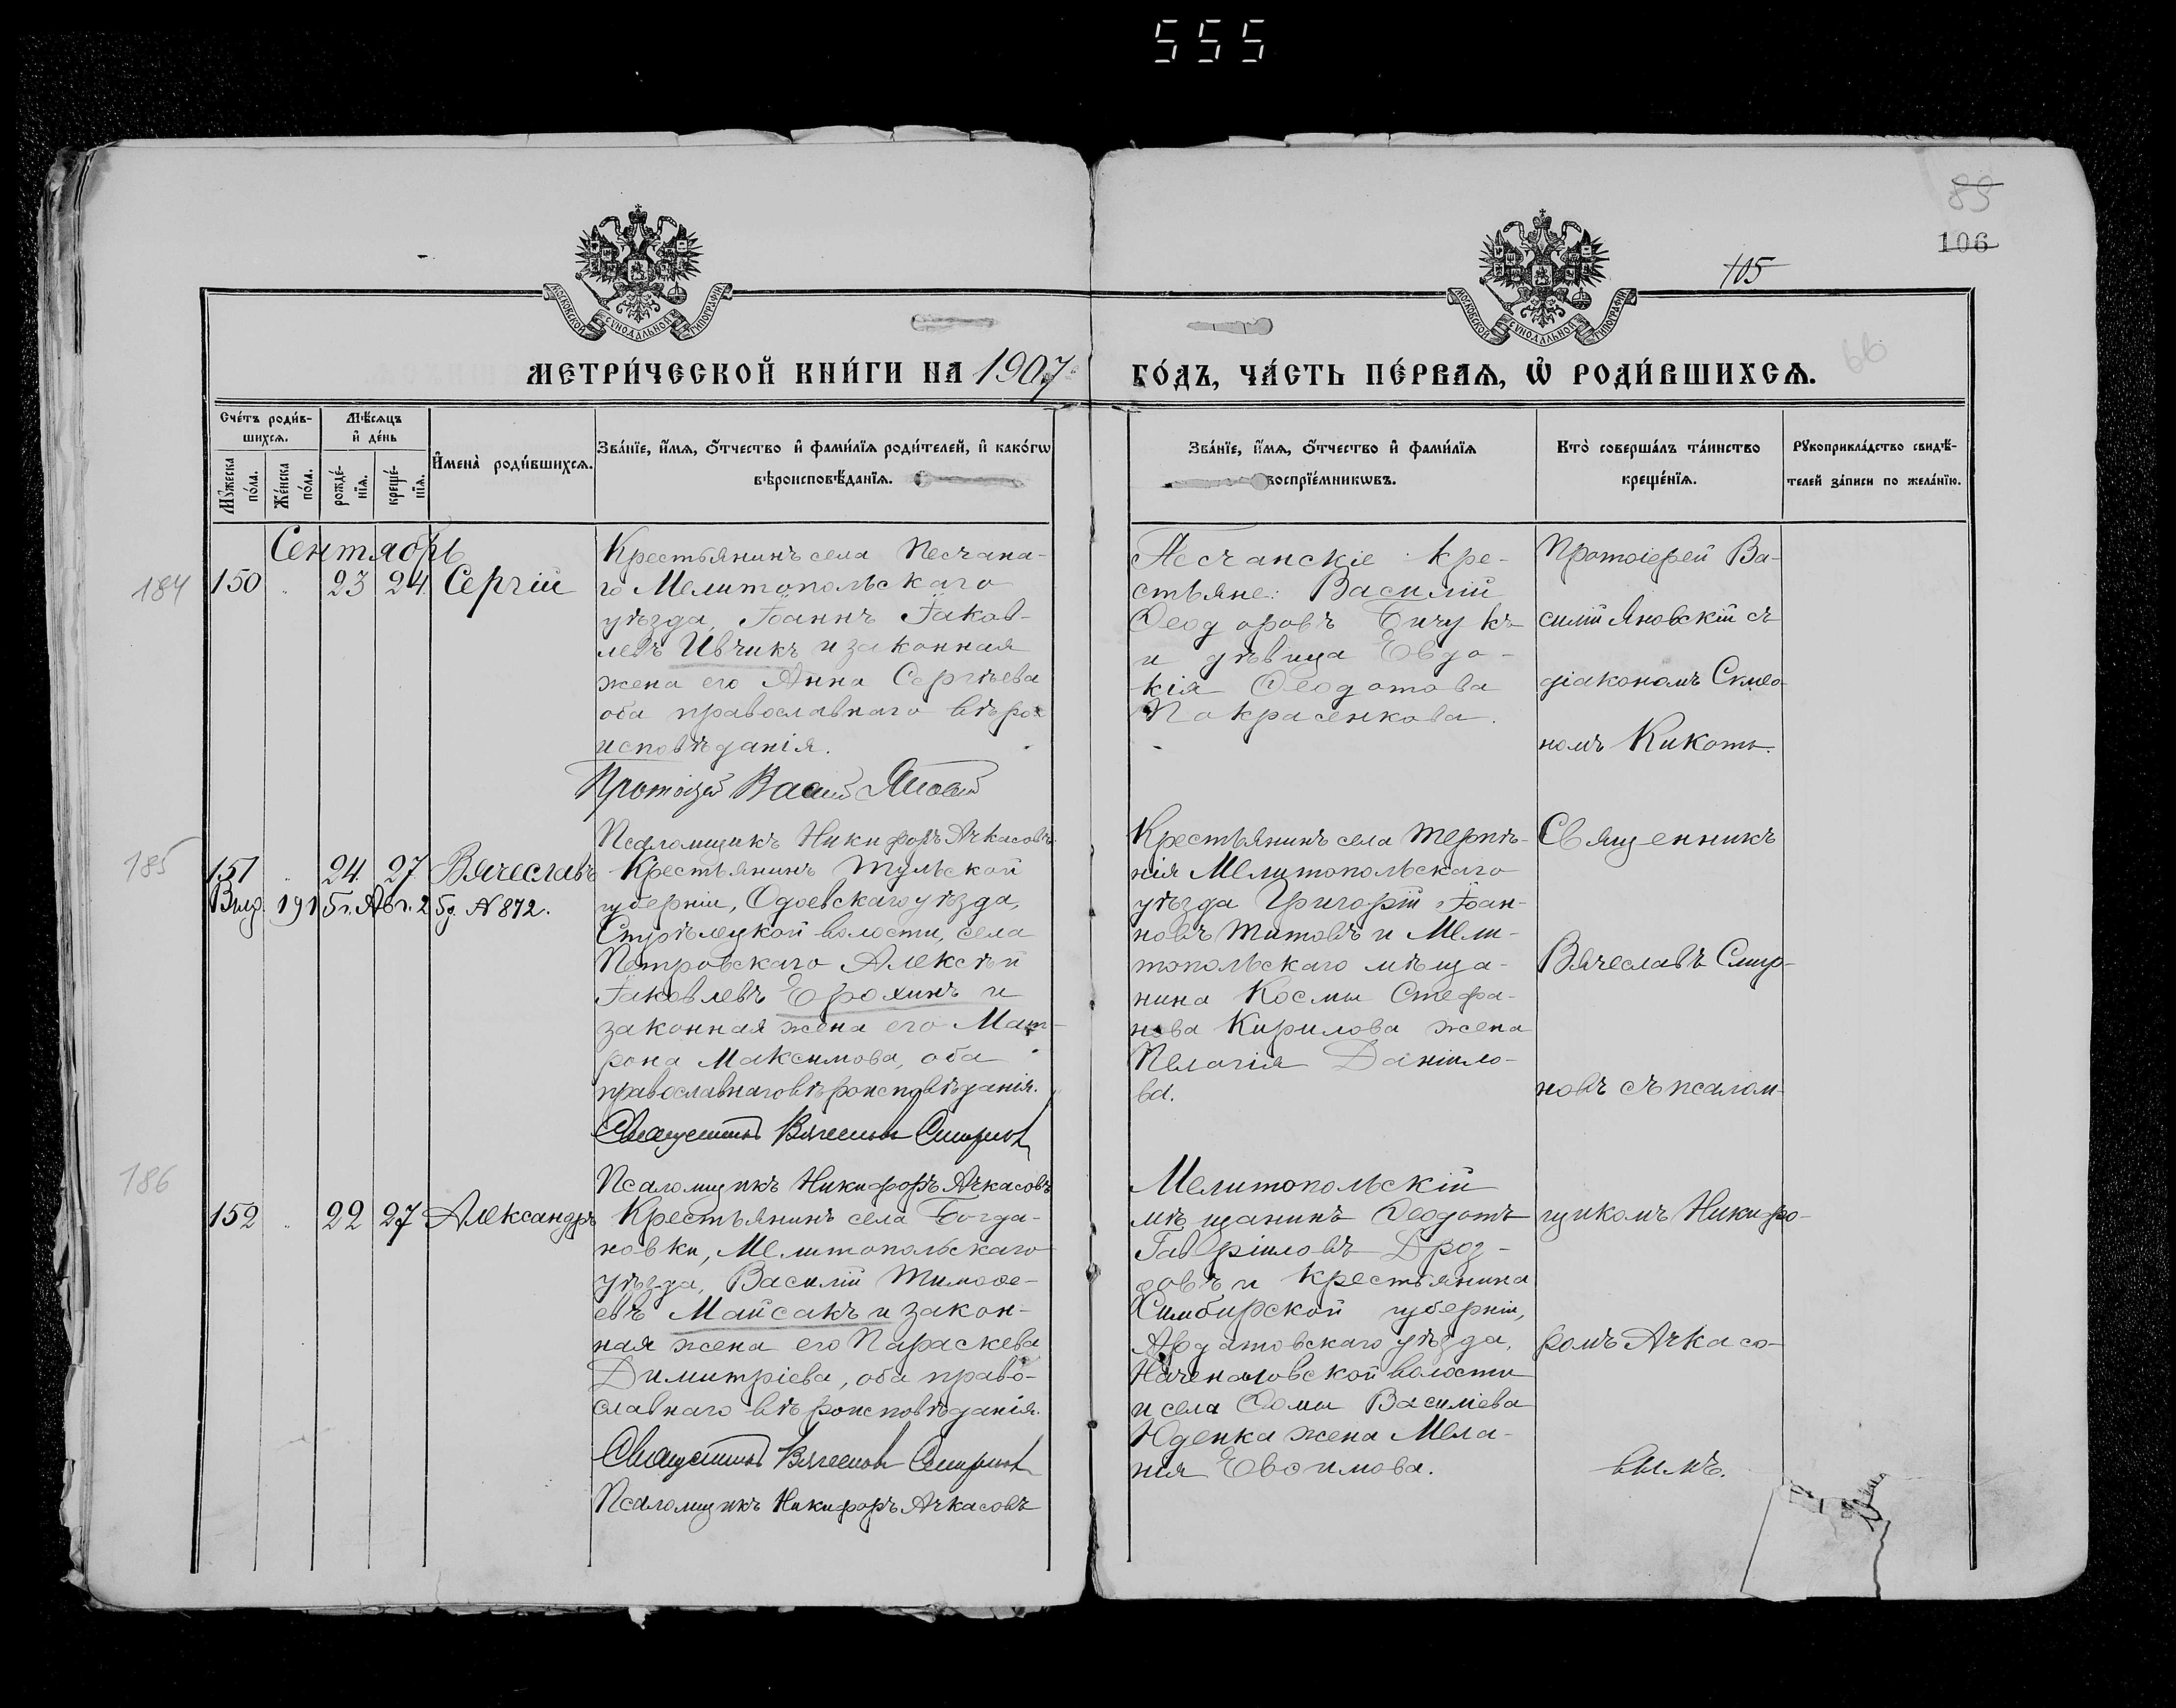 555
89
106
105
66
МОСКОВСКОЙ СѴНОДАЛЬНОЙ ТИПОГРАФІИ
МОСКОВСКОЙ СѴНОДАЛЬНОЙ ТИПОГРАФІИ
МЕТРИ́ЧЕСКОЙ КНИ́ГИ НА 1907
ГО́ДЪ, ЧА́СТЬ ПЕ́РВАѦ, Ѡ҆ РОДИ́ВШИХСѦ.
Сче́тъ роди́в-
шихсѧ.
Мѣ́сѧцъ
и҆ де́нь
Мꙋ́жеска
по́ла.
Же́нска
по́ла.
рожде́-
нїѧ.
креще́-
нїѧ.
И҆мена̀ роди́вшихсѧ.
Зва́нїе, и҆́мѧ, ѻ҆́тчество и҆ фами́лїѧ роди́телей, и҆ како́гѡ
вѣроисповѣ́данїѧ.
Зва́нїе, и҆́мѧ, ѻ҆́тчество и҆ фами́лїѧ
воспрїе́мникѡвъ.
Кто̀ соверша́лъ та́инство
креще́нїѧ.
Рꙋкоприкла́дство свидѣ́-
телей за́писи по жела́нїю.
Сентябрь
184
150 " 23 24 Сергій
Крестьянинъ села Песчана-
го Мелитопольскаго
уѣзда, Іоаннъ Іаков-
левъ Ивчикъ и законная
жена его Анна Сергѣева
оба православнаго вѣро-
исповѣданія.
Протоіерей Василій Яновскій
Псаломщикъ Никифоръ Ачкасовъ
Песчанскіе кре-
стьяне: Василій
Ѳеодоровъ Бичукъ
и дѣвица Евдо-
кія Ѳеодотова
Покрасенкова.
Протоіерей Ва-
силій Яновскій съ
діакономъ Симео-
номъ Кикоть.
185
151 " 24 27 Вячеславъ
Выд. 1915г. Авг. 25д. № 872.
Крестьянинъ Тульской
губерніи, Одоевскаго уѣзда,
Стрѣлецкой волости, села
Петровскаго Алексѣй
Іаковлевъ Ерохинъ и
законная жена его Мат-
рона Максимова, оба
православнаго вѣроисповѣданія.
Священникъ Вячеславъ Смирновъ
Псаломщикъ Никифоръ Ачкасовъ
Крестьянинъ села Терпѣ-
нія Мелитопольскаго
уѣзда Григорій Іоан-
новъ Титовъ и Мели-
топольскаго мѣща-
нина Космы Стефа-
нова Кирилова жена
Пелагія Даніило-
ва.
Священникъ
Вячеславъ Смир-
новъ съ псалом-
щикомъ Никифо-
ромъ Ачкасо-
вымъ.
186
152 " 22 27 Александръ
Крестьянинъ села Богда-
новки, Мелитопольскаго
уѣзда, Василій Тимоѳе-
евъ Майсакъ и закон-
ная жена его Параскева
Димитріева, оба право-
славнаго вѣроисповѣданія.
Священникъ Вячеславъ Смирновъ
Псаломщикъ Никифоръ Ачкасовъ
Мелитопольскій
мѣщанинъ Ѳеодотъ
Гавріиловъ Дроз-
довъ и крестьянина
Симбирской губерніи,
Ардатовскаго уѣзда,
Наченаловской волости
и села Ѳомы Василіева
Юденка жена Мела-
нія Евѳимова.